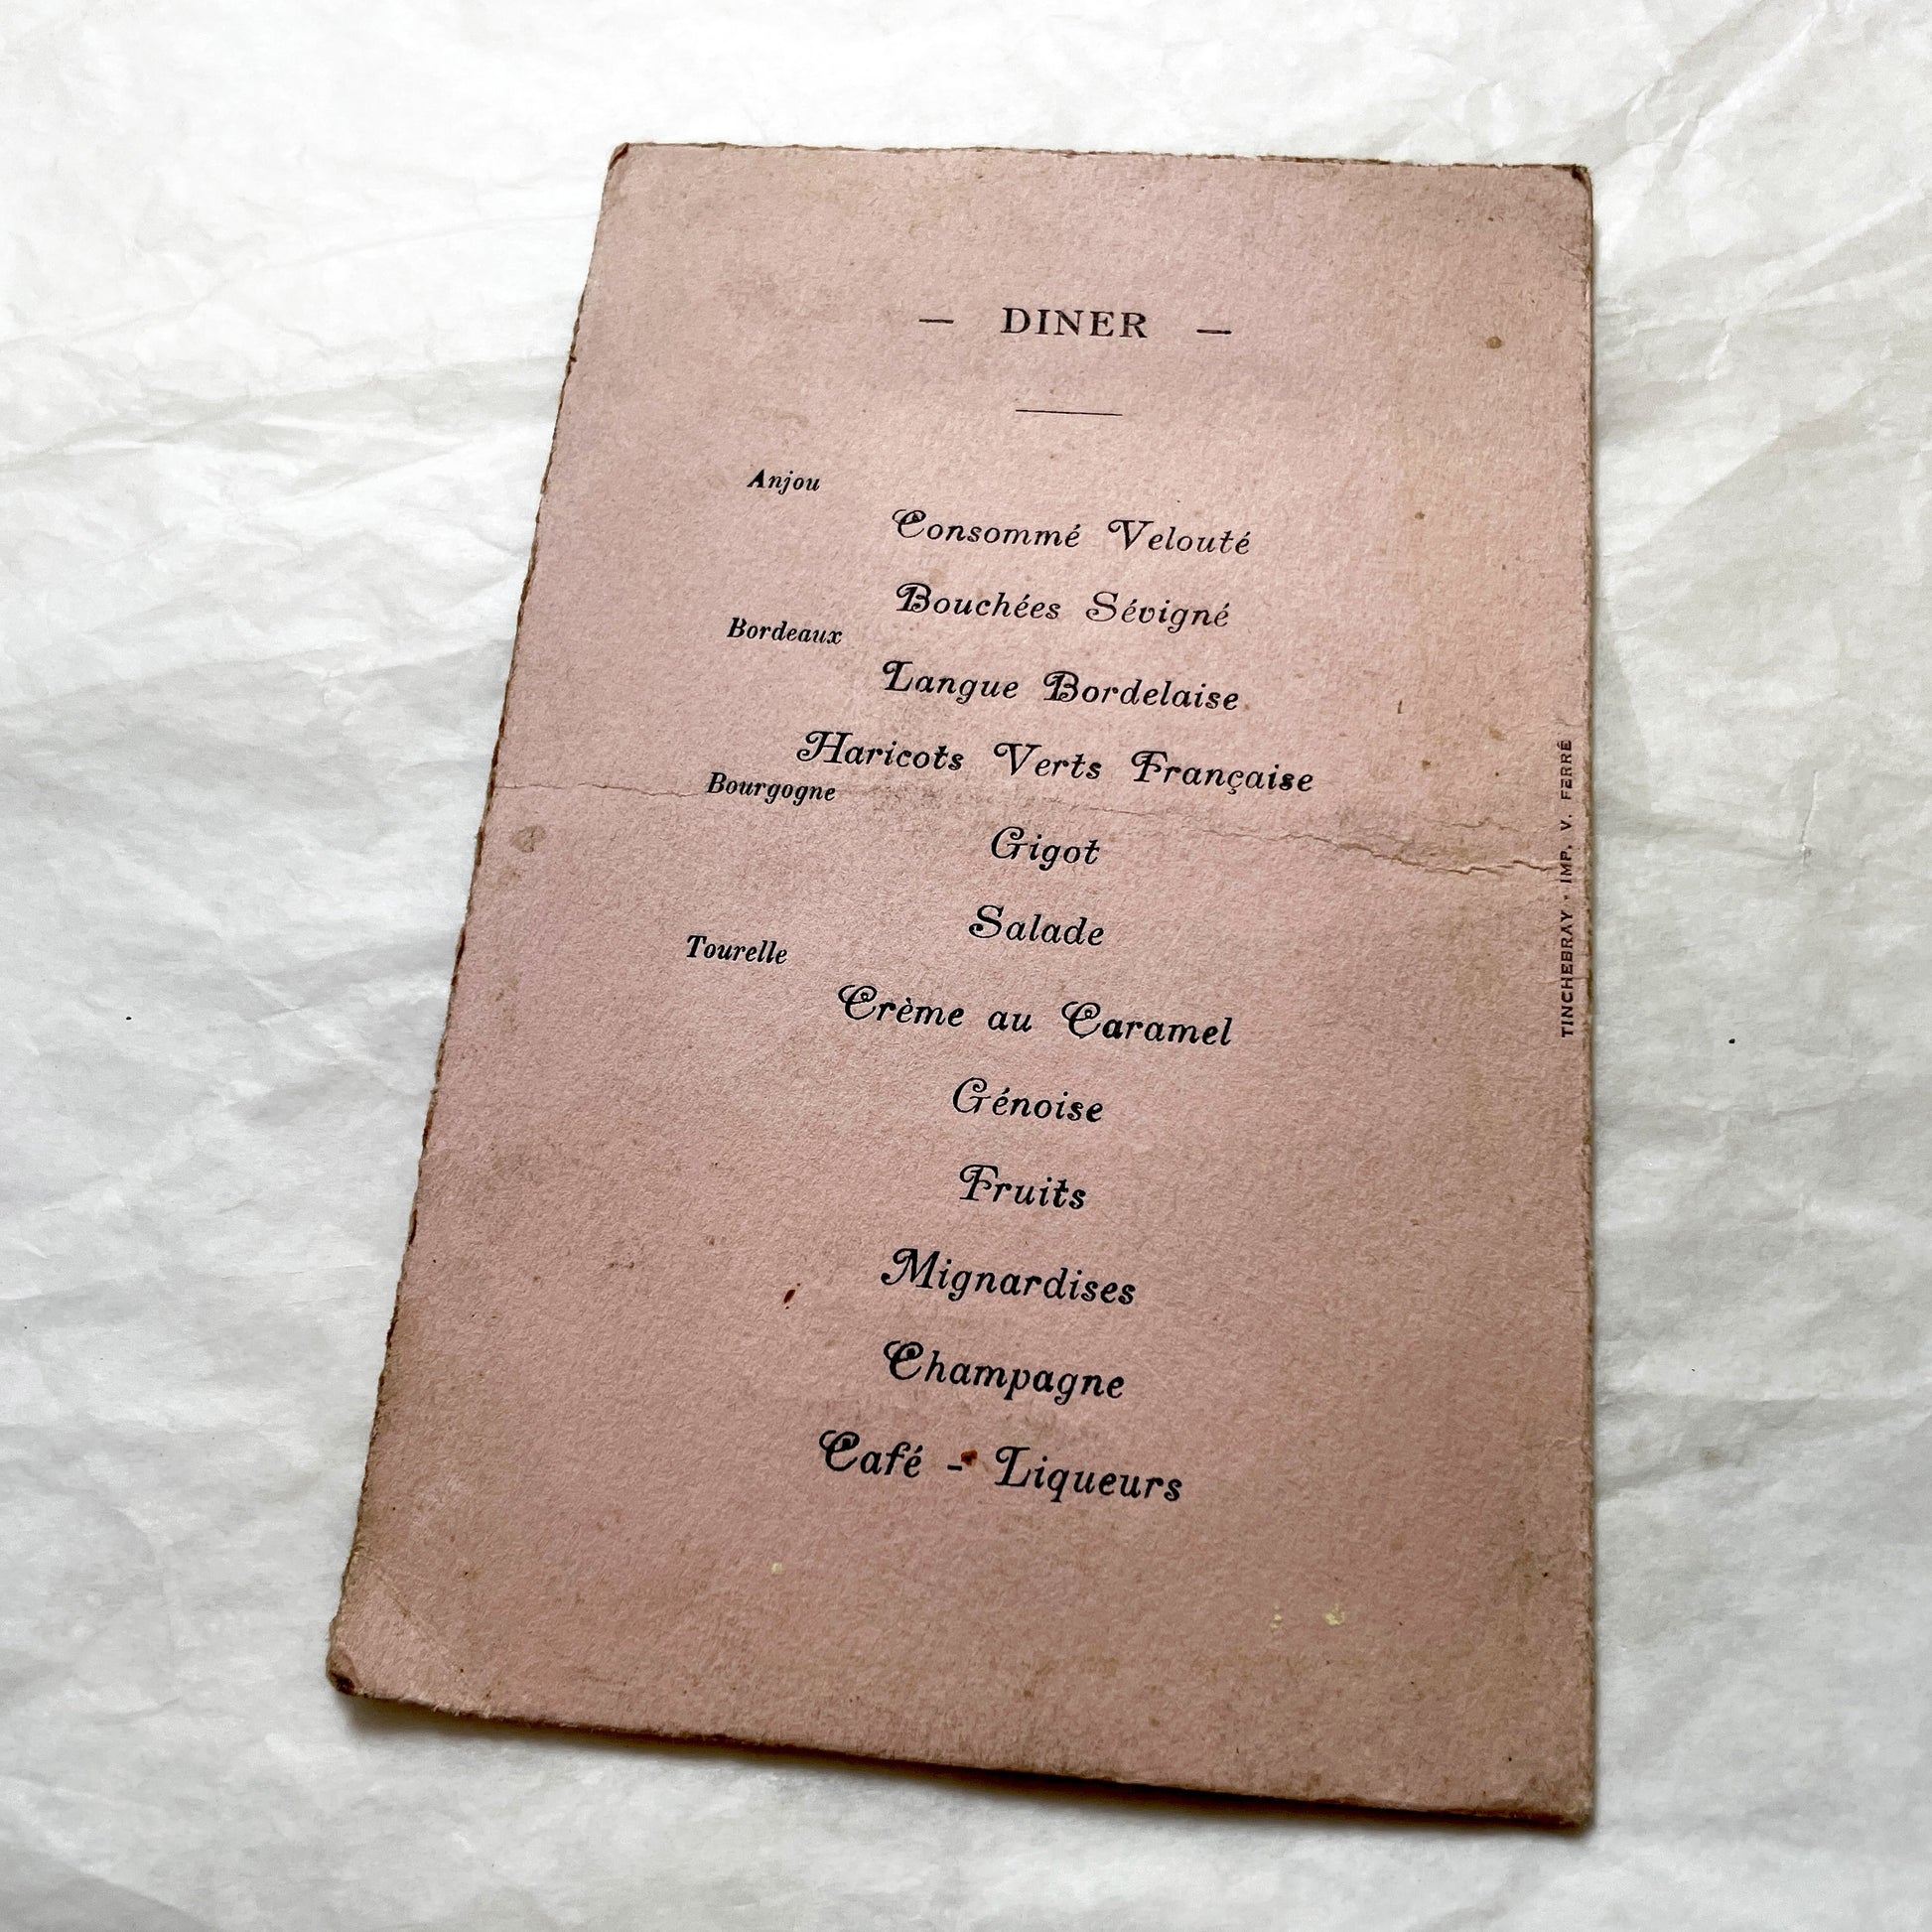 — DINER —
Anjou
Consommé Velouté
Bouchées Sévigné
Bordeaux
Langue Bordelaise
Haricots Verts Française
Bourgogne
Gigot
Salade
Tourelle
Crème au Caramel
Génoise
Fruits
Mignardises
Champagne
Café - Liqueurs
TINCHEBRAY - IMP. V. FERRÉ